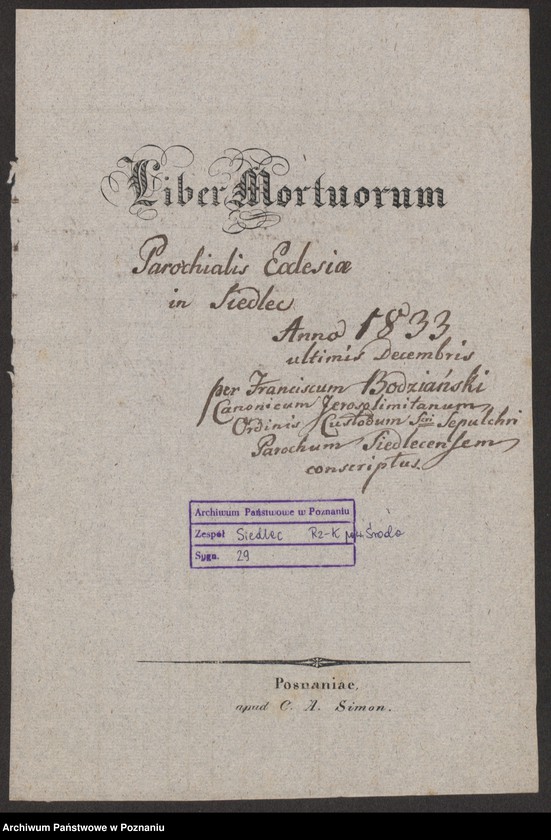 Liber Mortuorum
Parochialis Ecclesiæ
in Siedlec
Anno 1833
ultimis Decembris
per Franciscum Bodziański
Canonicum Jerosolimitanum
Ordinis Custodum Scri Sepulchri
Parochum Siedlecensem
conscriptus.
Archiwum Państwowe w Poznaniu
Zespół Siedlec Rz-K pow Środa
Sygn. 29
Posnaniae,
apud C. A. Simon.
Archiwum Państwowe w Poznaniu